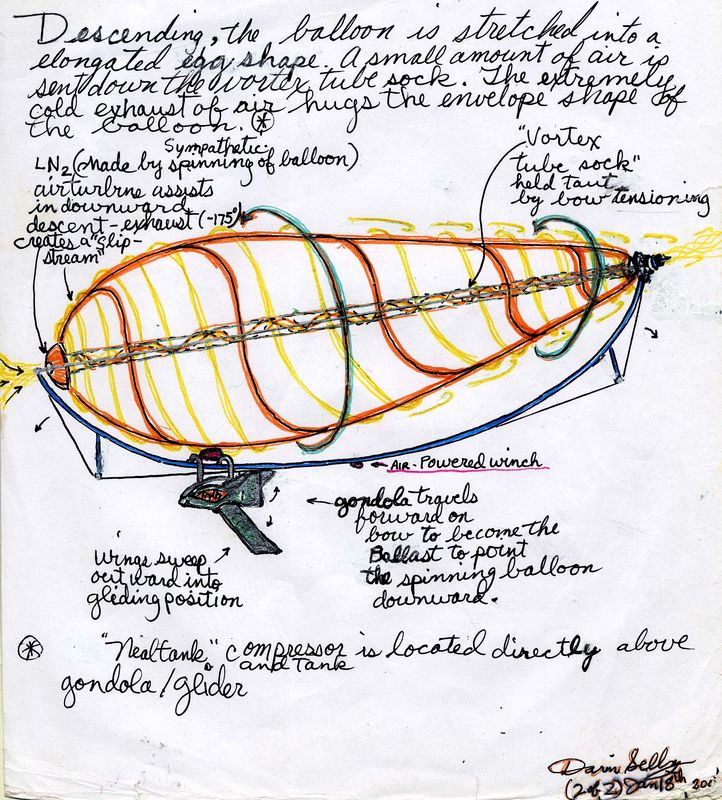 Descending, the balloon is stretched into a
elongated egg shape. A small amount of air is
sent down the vortex tube sock. The extremely
cold exhaust of air hugs the envelope shape of
the balloon. *
Sympathetic
LN2 (Made by spinning of balloon)
air turbine assists
in downward
descent-exhaust (-175°)
creates a "slip-
stream"
"Vortex
tube sock"
held taut
by bow tensioning
AIR-Powered winch
gondola travels
forward on
bow to become the
Ballast to point
the spinning balloon
downward.
Wings sweep
outward into
gliding position
* "Nealtank" compressor is located directly above
and tank
gondola/glider
(2 of 2) Jan 18th